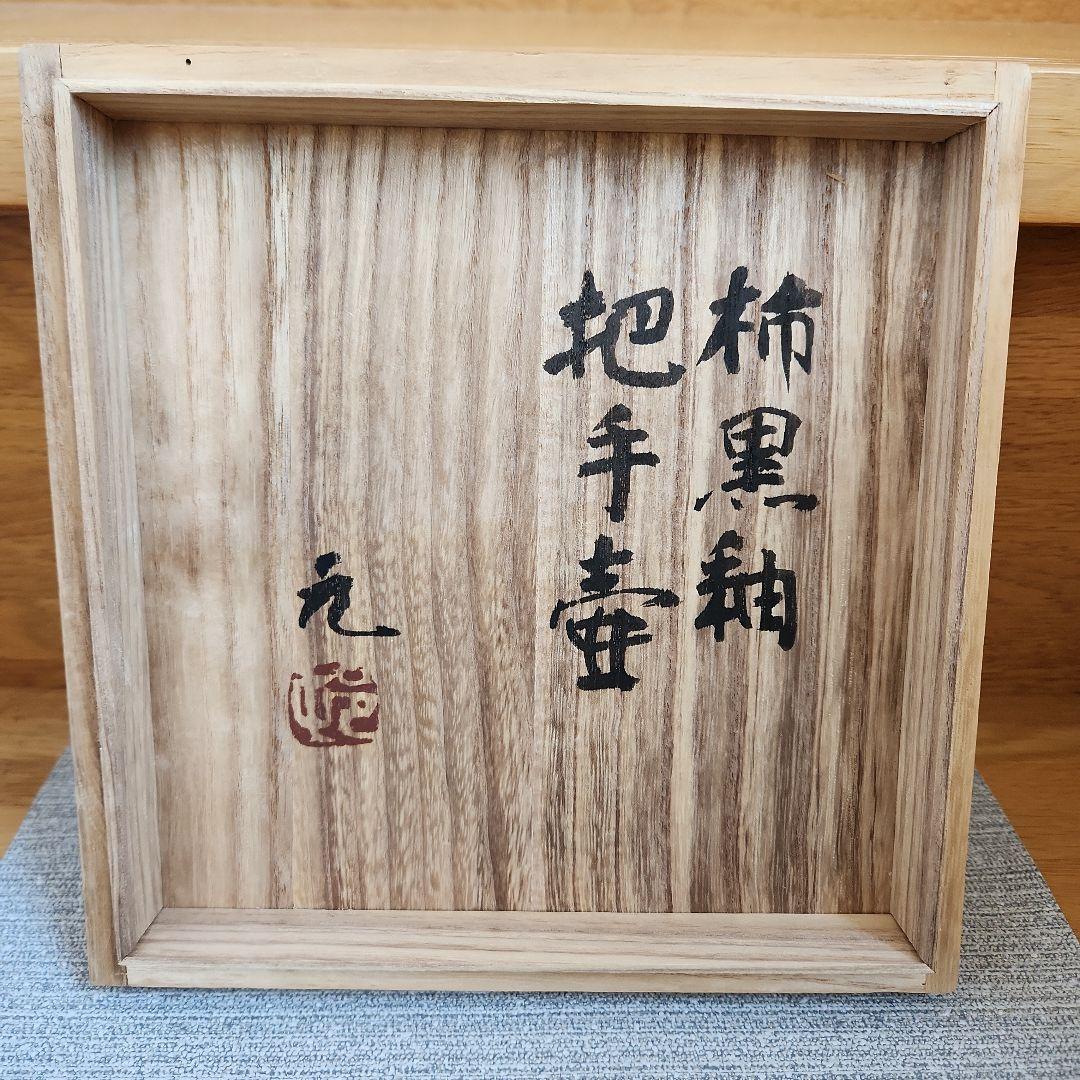 柿黒釉
把手壺
元